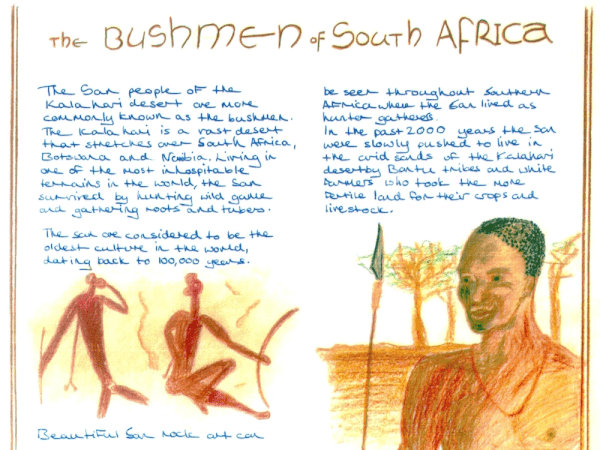 The BUSHMEN OF SOUTH AFRICA
The San people of the
Kalahari desert are more
commonly known as the bushmen.
The Kalahari is a vast desert
that stretches over South Africa,
Botswana and Namibia. Living in
one of the most inhospitable
terrains in the world, the San
survived by hunting wild game
and gathering roots and tubers.
The San are considered to be the
oldest culture in the world,
dating back to 100,000 years.
Beautiful San rock art can
be seen throughout Southern
Africa where the San lived as
hunter gatherers.
In the past 2000 years the San
were slowly pushed to live in
the arid sands of the Kalahari
desert by Bantu tribes and white
farmers who took the more
fertile land for their crops and
livestock.